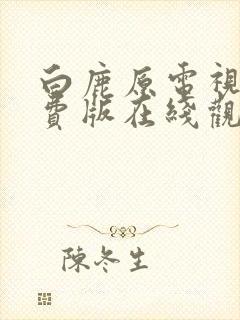 白鹿原電視
費版在綫觀
陳冬生